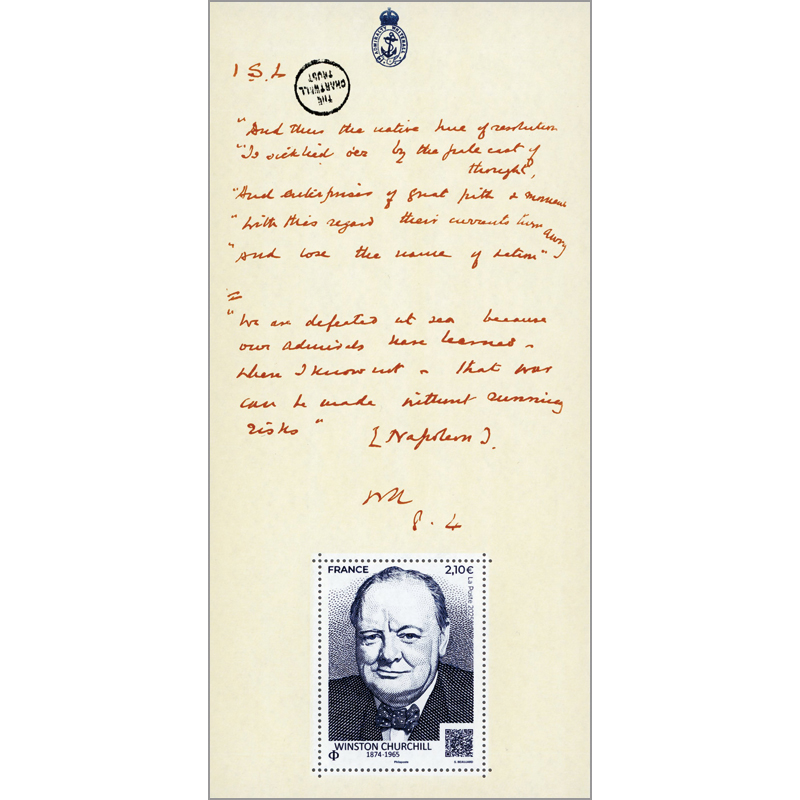 ADMIRALTY WHITEHALL
1 S.L
THE CHARTWELL TRUST
"And thus the native hue of resolution
"Is sicklied o'er by the pale cast of
thought,
"And enterprises of great pith & moment
"With this regard their currents turn away
"And lose the name of action"
II
"We are defeated at sea because
our admirals have learned -
where I know not - that war
can be made without running
risks"
[Napoleon].
8.4
FRANCE 2,10€
La Poste
WINSTON CHURCHILL
1874-1965
Philaposte